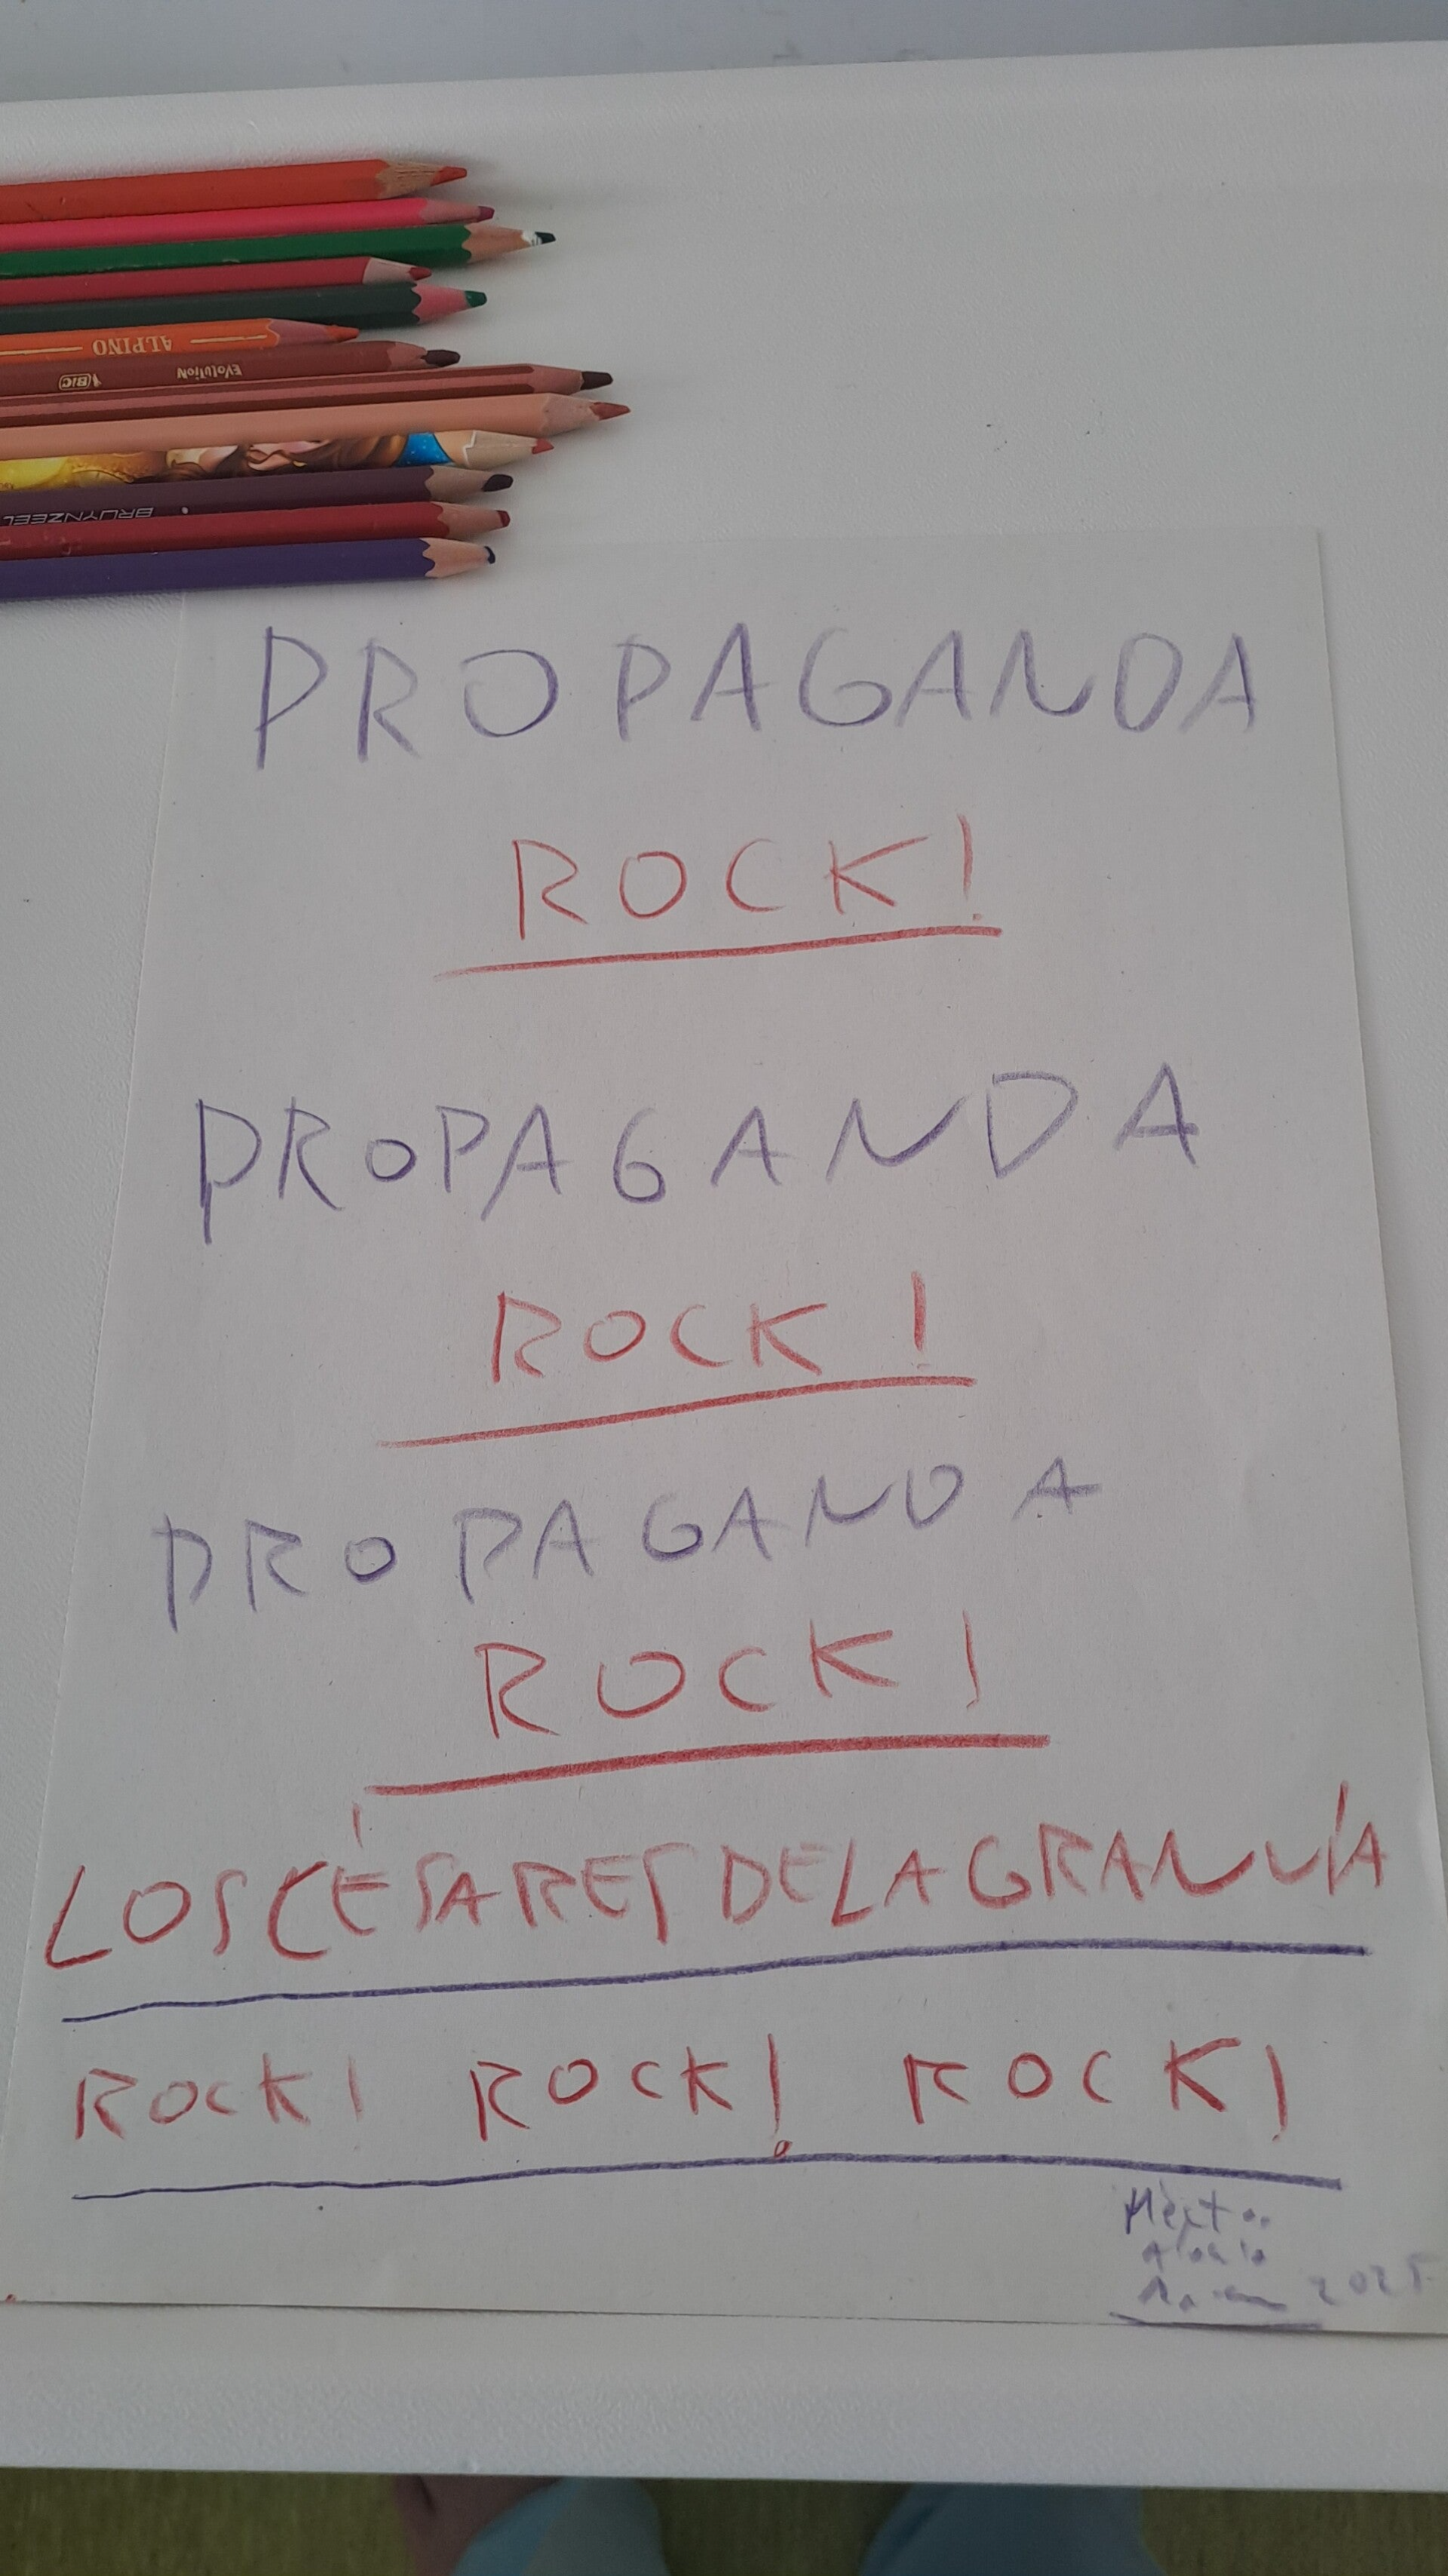 ALPINO
BIC EVOLUTION
BRUYNZEEL
PROPAGANDA
ROCK!
PROPAGANDA
ROCK!
PROPAGANDA
ROCK!
LOS CÉSARES DE LA GRAN VÍA
ROCK! ROCK! ROCK!
Héctor
2025